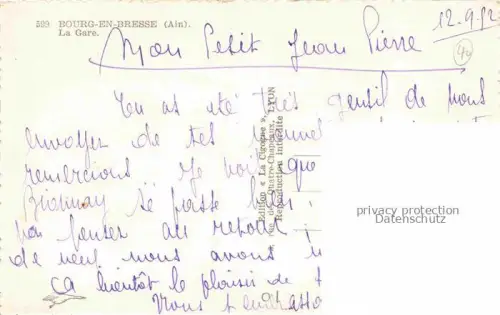 529 BOURG-EN-BRESSE (Ain).
La Gare.
12-9-52
40
Mon Petit Jean Pierre
Tu as été très gentil de nous
envoyer de tes
remercions Je vois que
se passe
pas penser au retour
de neuf nous avons
ça bientôt le plaisir de t
Nous t'embrasso
Edition « La Cigogne »,
rue des Quatre-Chapeaux, LYON
Reproduction interdite
privacy protection
Datenschutz